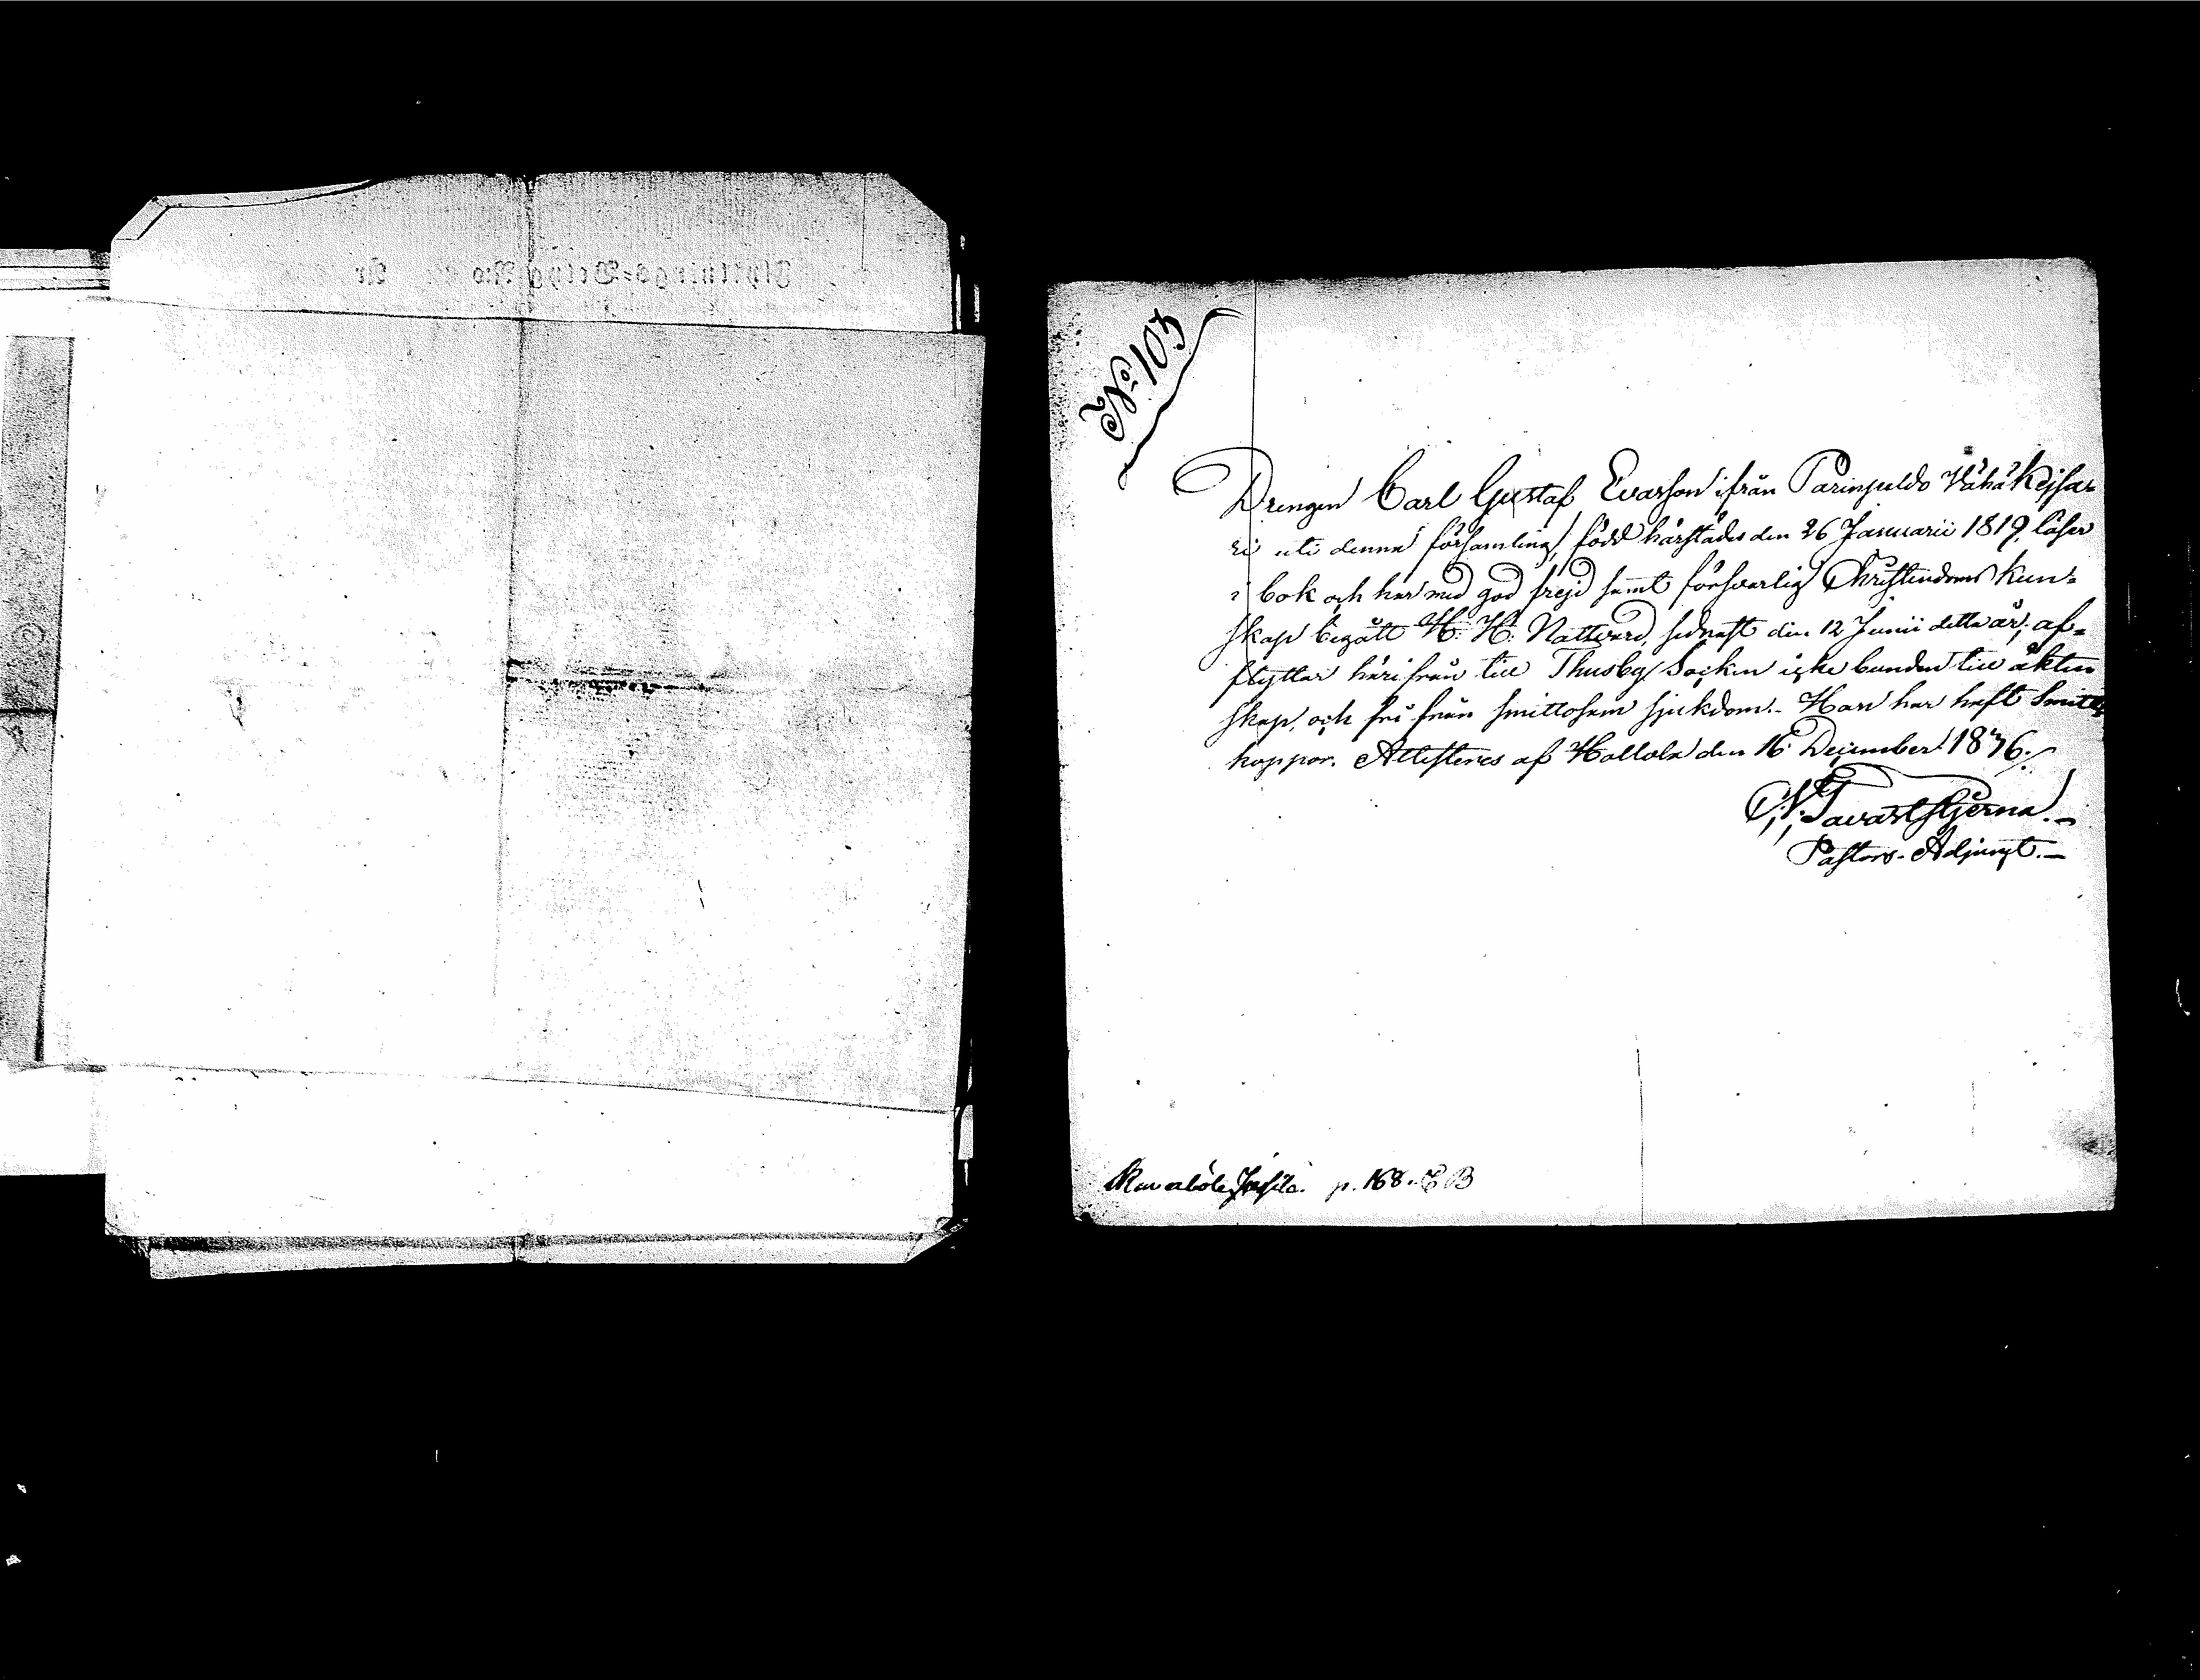 Flyttnings-Betyg N:o År
N:o 104
Drengen Carl Gustaf Evarsson ifrån Parinpeldo Vähä Kejsa-
ri uti denna församling, född härstädes den 26 Januarii 1819, läser
i bok och har med god frejd samt försvarlig Christendoms kun-
skap begått H. H. Nattvard, sednast den 12 Junii detta år; af-
flyttar härifrån till Thusby Socken icke bunden till äkten
skap, och fri från smittosam sjukdom.- Han har haft Smitt-
koppor. Attesteres af Hollola den 16 December 1846.
N. Tavaststjerna.-
Pastors-Adjunct.-
p. 168. C B